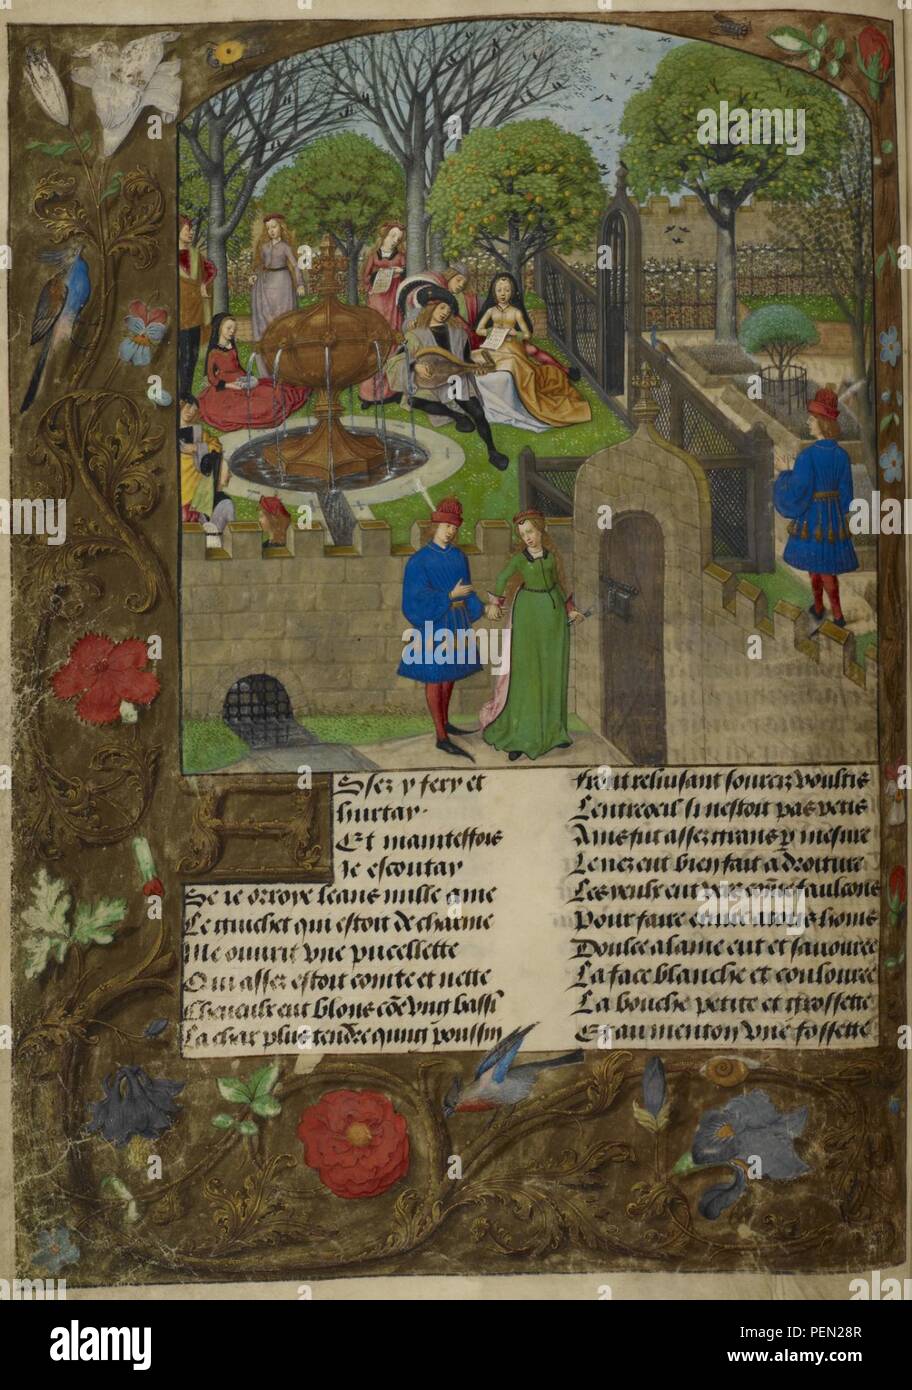 Ssez y fery et
hurtay·
Et maintesfois
Ie escoutay
Se ie orroye leans nulle ame
Le guichet qui estoit de charme
Me ouurit vne pucellette
Qui assez estoit comte et nette
Cheueulx eut blons cõe vng bassĩ
La char plus tendre quung poussin
Front reluisant sourciz voultis
Lentreoeil si nestoit pas petis
Ains fut assez grans p mesure
Le nez eut bien fait a droiture
Les yeulx eut vers cõme faulcons
Pour faire enuie a tous homs
Doulce alaine eut et sauouree
La face blanche et coulouree
La bouche petite et grossette
Et au menton vne fossette
alamy
Image ID: PEN28R
www.alamy.com